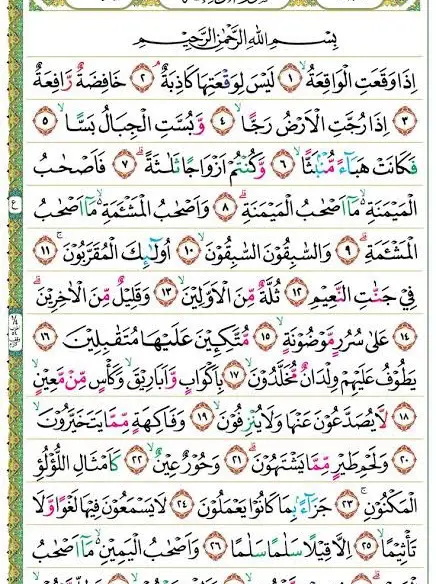 بِسْمِ اللهِ الرَّحْمٰنِ الرَّحِيْمِ
اِذَا وَقَعَتِ الْوَاقِعَةُ ۙ ﴿١﴾ لَيْسَ لِوَقْعَتِهَا كَاذِبَةٌ ۘ ﴿٢﴾ خَافِضَةٌ رَّافِعَةٌ
﴿٣﴾ اِذَا رُجَّتِ الْاَرْضُ رَجًّا ۙ ﴿٤﴾ وَّبُسَّتِ الْجِبَالُ بَسًّا ۙ ﴿٥﴾
فَكَانَتْ هَبَآءً مُّنْۢبَثًّا ۙ ﴿٦﴾ وَّكُنْتُمْ اَزْوَاجًا ثَلٰثَةً ۗ ﴿٧﴾ فَاَصْحٰبُ
الْمَيْمَنَةِ ۙ مَاۤ اَصْحٰبُ الْمَيْمَنَةِ ۗ ﴿٨﴾ وَاَصْحٰبُ الْمَشْـَٔمَةِ ۙ مَاۤ اَصْحٰبُ
الْمَشْـَٔمَةِ ۗ ﴿٩﴾ وَالسّٰبِقُوْنَ السّٰبِقُوْنَ ۙ ﴿١٠﴾ اُولٰٓئِكَ الْمُقَرَّبُوْنَ ۚ ﴿١١﴾
فِيْ جَنّٰتِ النَّعِيْمِ ﴿١٢﴾ ثُلَّةٌ مِّنَ الْاَوَّلِيْنَ ۙ ﴿١٣﴾ وَقَلِيْلٌ مِّنَ الْاٰخِرِيْنَ ۗ
﴿١٤﴾ عَلٰى سُرُرٍ مَّوْضُوْنَةٍ ۙ ﴿١٥﴾ مُّتَّكِـِٕيْنَ عَلَيْهَا مُتَقٰبِلِيْنَ ﴿١٦﴾
يَطُوْفُ عَلَيْهِمْ وِلْدَانٌ مُّخَلَّدُوْنَ ۙ ﴿١٧﴾ بِاَكْوَابٍ وَّاَبَارِيْقَ ۙ وَكَأْسٍ مِّنْ مَّعِيْنٍ ۙ
﴿١٨﴾ لَّا يُصَدَّعُوْنَ عَنْهَا وَلَا يُنْزِفُوْنَ ۙ ﴿١٩﴾ وَفَاكِهَةٍ مِّمَّا يَتَخَيَّرُوْنَ ۙ
﴿٢٠﴾ وَلَحْمِ طَيْرٍ مِّمَّا يَشْتَهُوْنَ ۗ ﴿٢١﴾ وَحُوْرٌ عِيْنٌ ۙ ﴿٢٢﴾ كَاَمْثَالِ اللُّؤْلُؤِ
الْمَكْنُوْنِ ۚ ﴿٢٣﴾ جَزَآءًۢ بِمَا كَانُوْا يَعْمَلُوْنَ ﴿٢٤﴾ لَا يَسْمَعُوْنَ فِيْهَا لَغْوًا وَّلَا
تَأْثِيْمًا ۙ ﴿٢٥﴾ اِلَّا قِيْلًا سَلٰمًا سَلٰمًا ﴿٢٦﴾ وَاَصْحٰبُ الْيَمِيْنِ ۙ مَاۤ اَصْحٰبُ